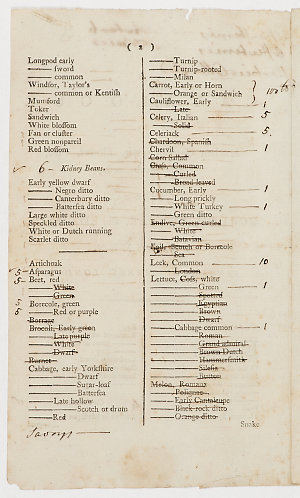 ( 2 )
Longpod early
—— sword
—— common
Windsor, Taylor's
—— common or Kentish
Mumford
Toker
Sandwich
White blossom
Fan or cluster
Green nonpareil
Red blossom
6 - Kidney Beans.
Early yellow dwarf
—— Negro ditto
—— Canterbury ditto
—— Battersea ditto
Large white ditto
Speckled ditto
White or Dutch running
Scarlet ditto
Artichoak
5 - Asparagus
5 - Beet, red
—— White
—— Green
5 Borecole, green
5 —— Red or purple
Borrage
Brocoli, Early green
—— Late purple
—— White
—— Dwarf
Burnet
Cabbage, early Yorkshire
—— Dwarf
—— Sugar-loaf
—— Battersea
—— Late hollow
—— Scotch or drum
—— Red
Savoys
—— Turnip
—— Turnip-rooted
—— Milan
Carrot, Early or Horn
—— Orange or Sandwich
Cauliflower, Early — 1
—— Late
Celery, Italian — 5
—— Solid
Celeriack — 5
Chardoon, Spanish
Chervil — 1
Corn sallad
Cress, Common
—— Curled
—— Broad leaved
Cucumber, Early — 1
—— Long prickly
—— White Turkey — 1
—— Green ditto
Endive, Green curled
—— White
—— Batavian
Kail, Scotch or Borecole
—— Sea
Leek, Common — 10
—— London
Lettuce, Coss, white
—— Green — 1
—— Spotted
—— Egyptian
—— Brown
—— Dwarf
—— Cabbage common — 1
—— Roman
—— Grand admiral
—— Brown Dutch
—— Hammersmith
—— Silesia
—— Button
Melon, Romana
—— Polignac
—— Early Cantaleupe
—— Black rock ditto
—— Orange ditto
Snake